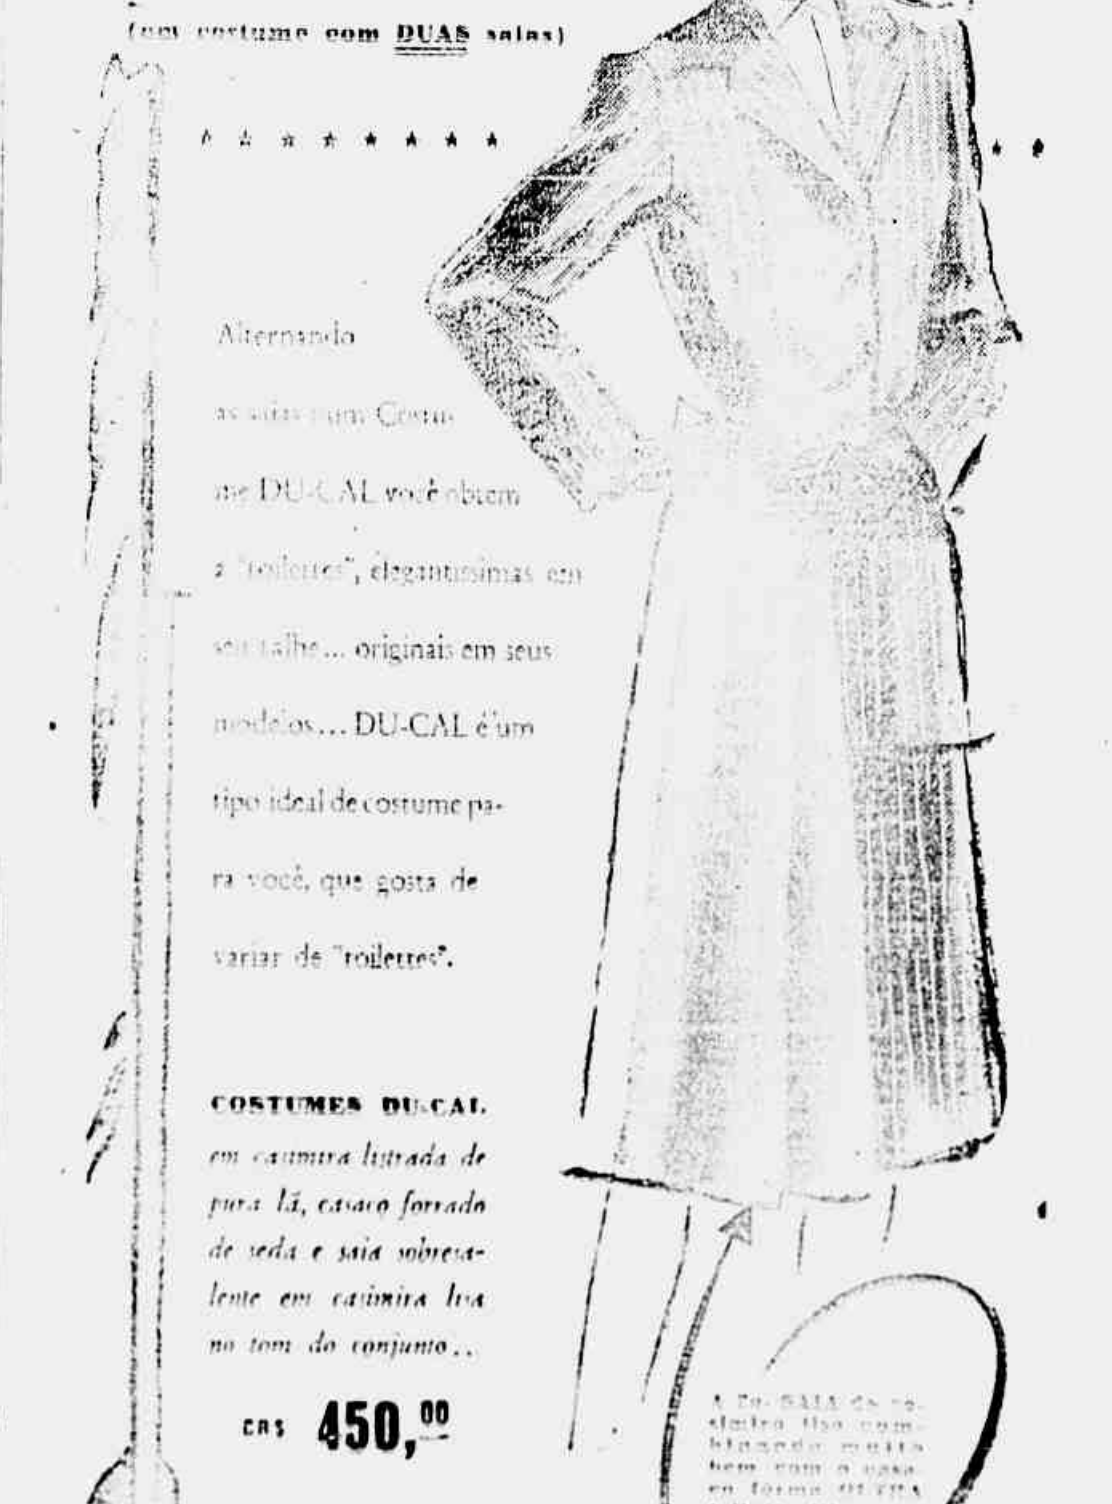 (um costume com DUAS saias)
Alternando
as saias num Costu-
me DU-CAL você obtem
2 "toilettes", elegantissimas em
seu talhe... originais em seus
modelos... DU-CAL é um
tipo ideal de costume pa-
ra você, que gosta de
variar de "toilettes".
COSTUMES DU-CAL
em casimira listrada de
pura lã, casaco forrado
de seda e saia sobresa-
lente em casimira lisa
no tom do conjunto...
CR$ 450,00
A 2a. SAIA de ca-
simira lisa com-
binando muito
bem com o casa-
co forma OUTRA